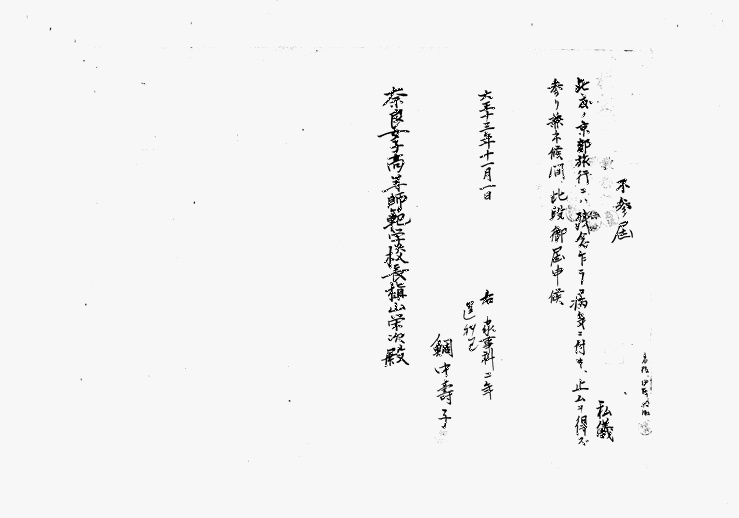 不参届
私儀
此度ノ京都旅行ニハ残念乍ラ病気ニ付キ、止ムヲ得ズ
参リ兼ネ候間、此段御届申候
大正十三年十一月一日
右 家事科二年
鯛中壽子
奈良女子高等師範学校長槇山栄次殿